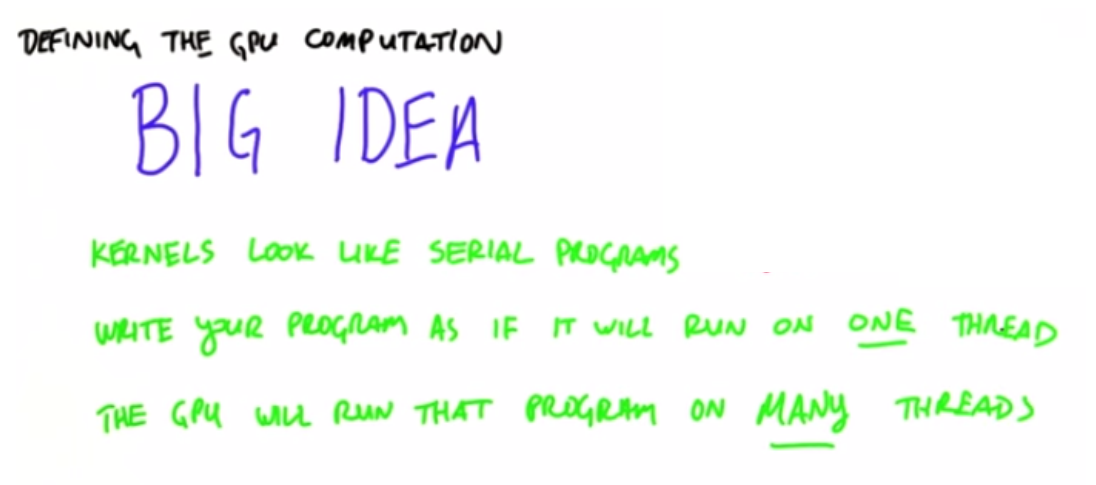 DEFINING THE GPU COMPUTATION
BIG IDEA
KERNELS LOOK LIKE SERIAL PROGRAMS
WRITE YOUR PROGRAM AS IF IT WILL RUN ON ONE THREAD
THE GPU WILL RUN THAT PROGRAM ON MANY THREADS